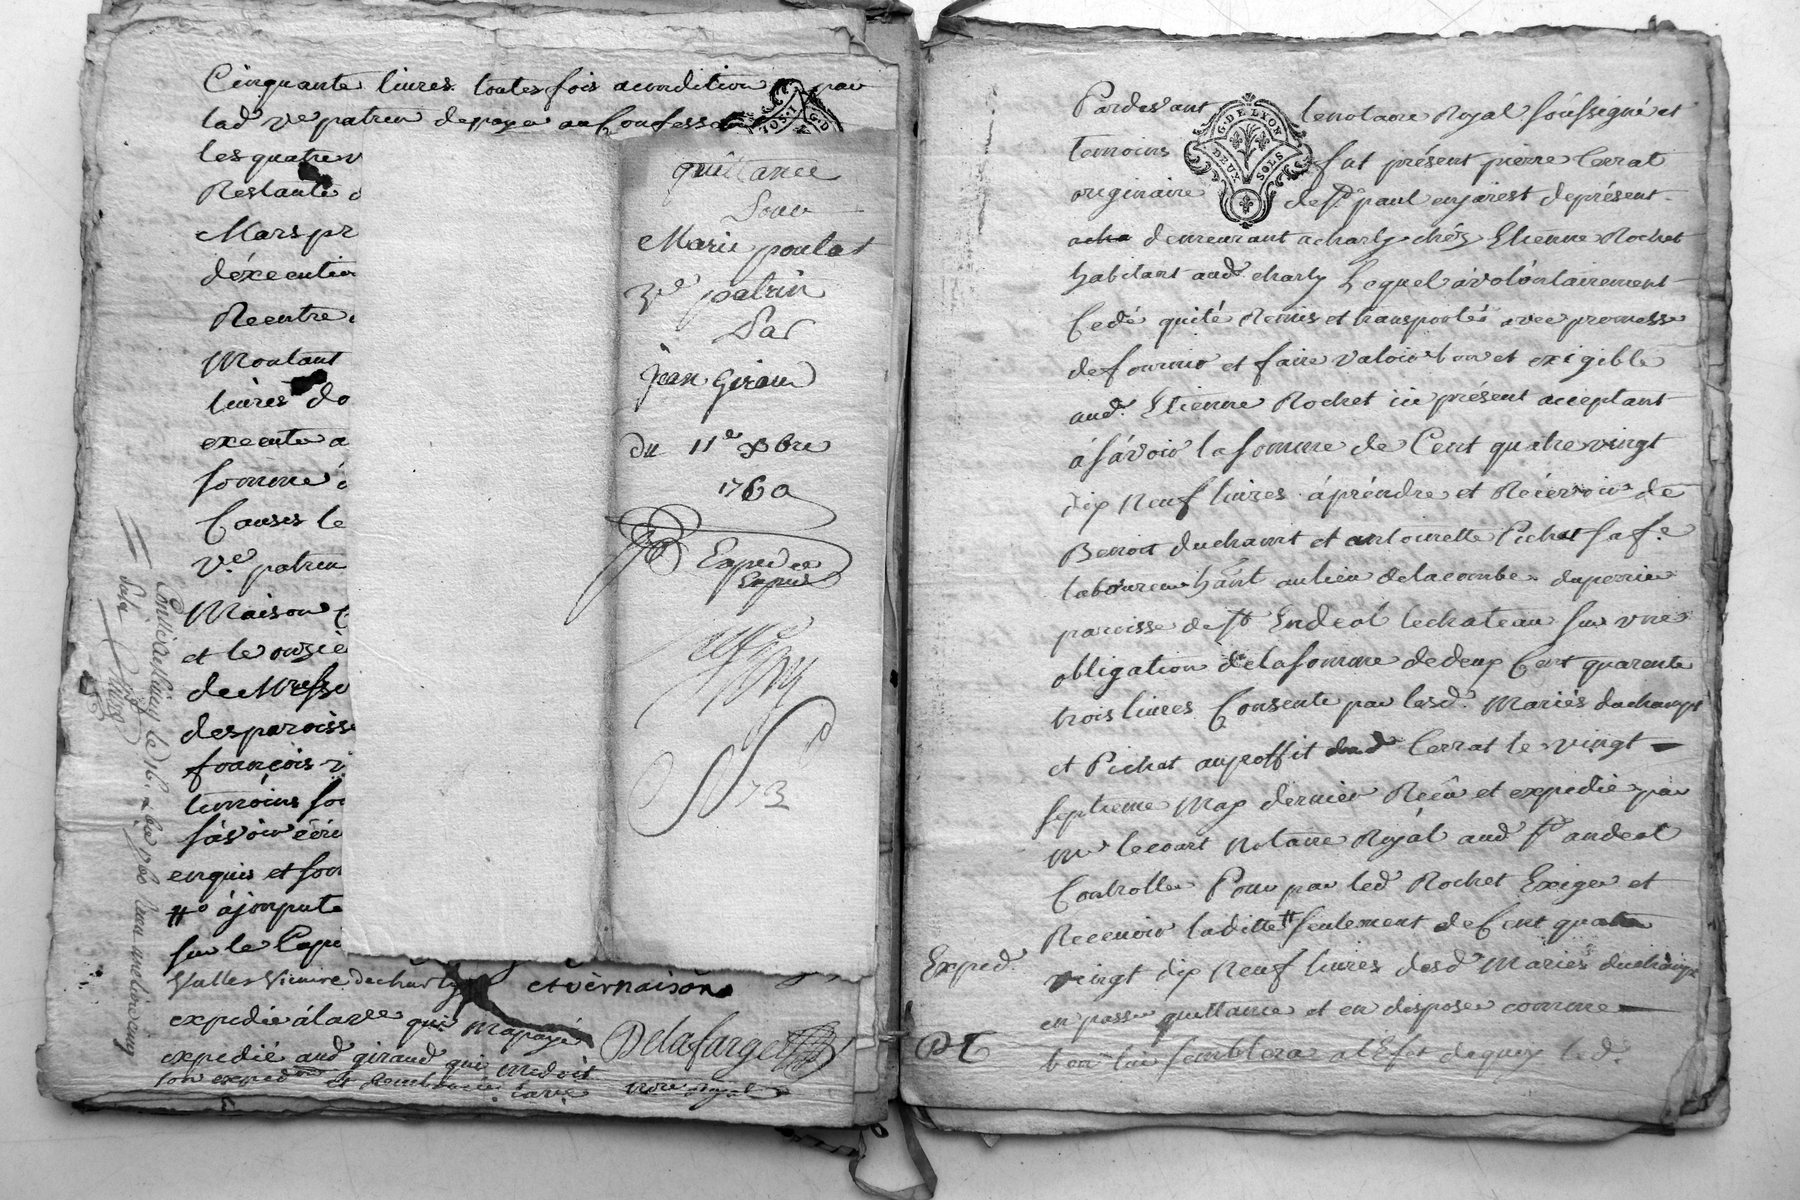 Cinquante livres toutes fois acondition par
lad ve patrin depayer
les quatre v
Restante d
Mars pr
d'éxecution
Reentre
Montant
livres do
execute a
somme
Causes le
Ve patrin
Maison
et le onziè
de Messe
des paroisse
françois
temoins so
sávoir écri
enquis et som
ájonpute
sur le Cape
Valles Vicaire decharly et vernaison
expedié álave qui mapayé
expedié aud giraud qui medoit
son expedon
Delafarge
nore royal
Controllé le 16 xbre 1760
quittance
Pour
Marie poulat
Ve patrin
Par
jean Giraud
du 11e xbre
1760
Exped
73
G. DE LYON
DEUX SOLS
Pardevant lenotaire Royal soússigné et
temoins fut présent pierre Cerrat
originaire de st paul enjarest deprésent
demeurant acharly chéz Etienne Rochet
habitant aud charly Lequel avolóntairement
Cedé quité Remis et transportés avec promesse
defournir et faire valoir bon et exigible
aud. Etienne Rochet ici présent acceptant
ásávoir lasomme de Cent quatre vingt
dix Neuf livres áprendre et Récevoir de
Benoit duchamt et antoinette Pichat safe
laboureur hant aulieu delacombe duperier
paroisse de st Endeól lechateau sur une
obligation delasomme dedeux Cent quarente
trois livres Consente par lesd. Mariés duchamps
et Pichat auproffit dud Cerrat le vingt
septieme May dernier Recu et expedié par
me lecourt Notaire Royál aud st andeol
Controllé Pour par led Rochet Exiger et
Recevoir laditte seulement de Cent quatre
vingt dix Neuf livres desd Mariés duchamps
en passer quittance et en disposer comme
bon lui semblera al'Efet dequoy led.
Exped.